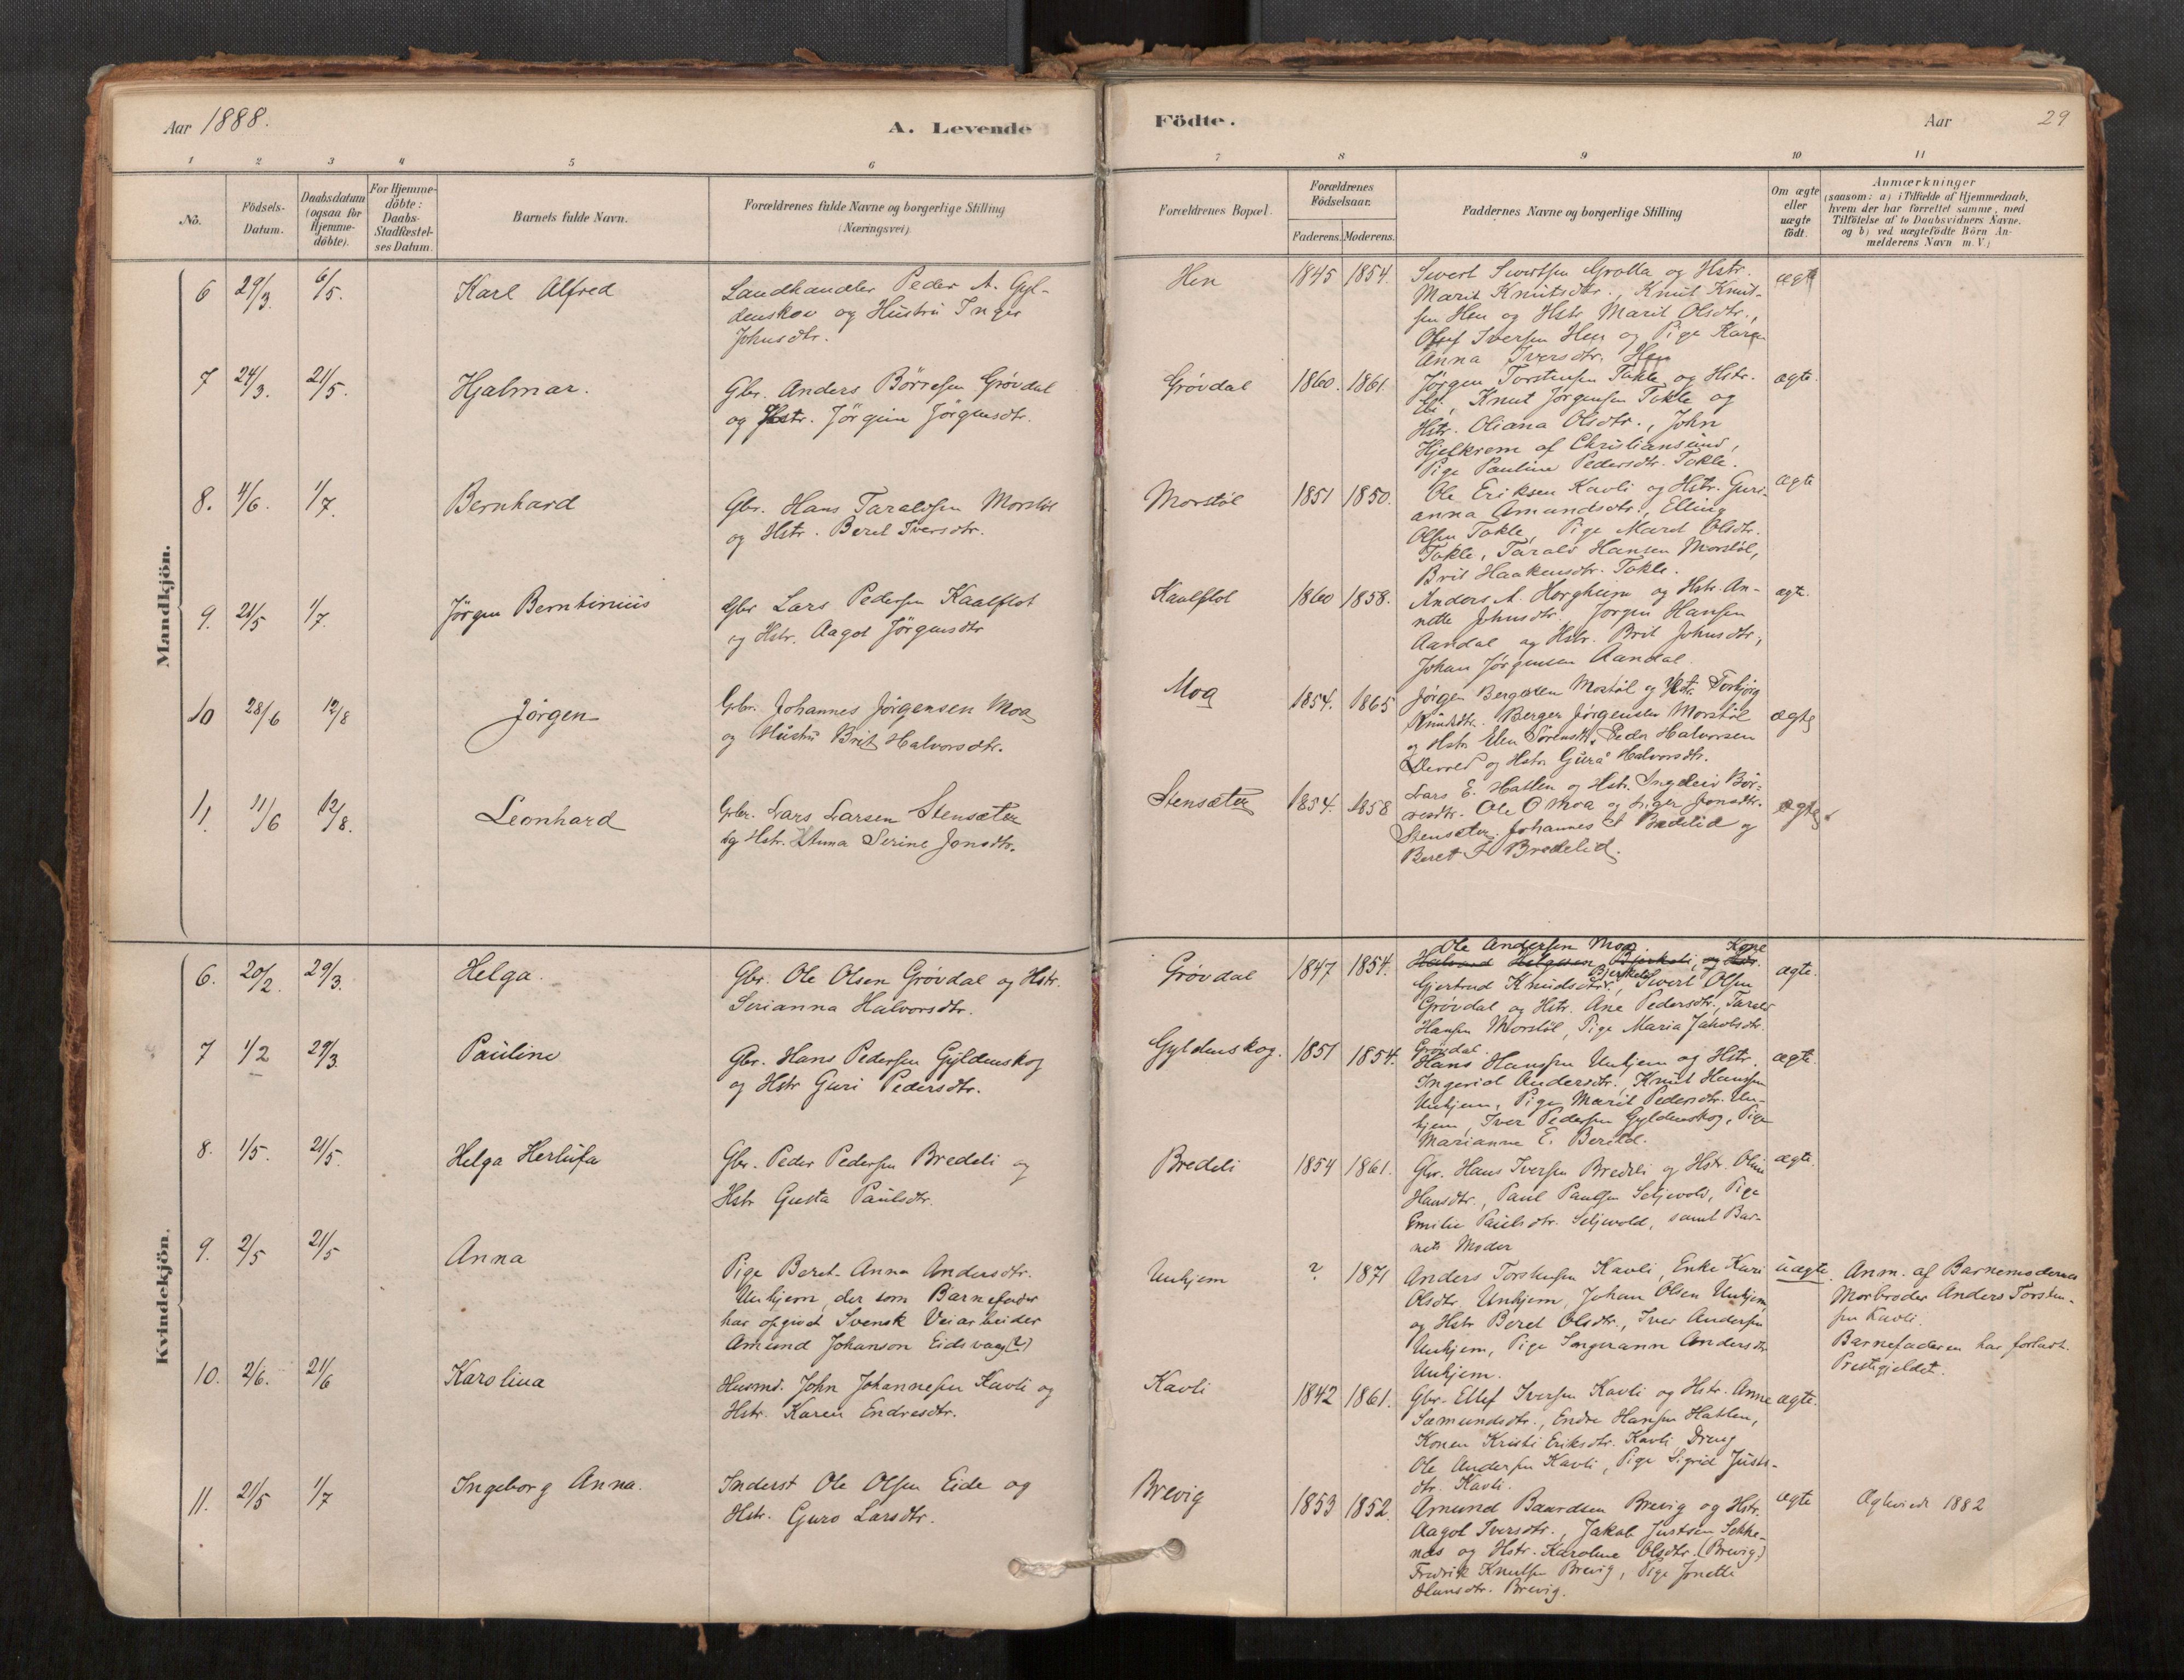 Aar 1888.
A. Levende
Födte.
Aar
29
1 2 3 4 5 6 7 8 9 10 11
No.
Födsels-
Datum.
Daabsdatum
(ogsaa for
Hjemme-
döbte).
For Hjemme-
döbte:
Daabs-
Stadfæstel-
ses Datum.
Barnets fulde Navn.
Forældrenes fulde Navne og borgerlige Stilling
(Næringsvei)
Forældrenes Bopæl.
Forældrenes
Födselsaar.
Faderens. Moderens.
Faddernes Navne og borgerlige Stilling
Om ægte
eller
uægte
födt.
Anmærkninger
(saasom: a) i Tilfælde af Hjemmedaab,
hvem der har forrettet samme, med
Tilföielse af to Daabsvidners Navne,
og b) ved uægtefödte Börn An-
melderens Navn m. V.)
Mandkjön.
6 29/3. 6/5. Karl Alfred
Landhandler Peder A. Gyl-
denskov og Hustru Inger
Johnsdtr.
Hen 1845 1854.
Sivert Sivertsen Grotta og Hstr.
Marit Knutsdtr., Knut Knut-
sen Hen og Hstr Marit Olsdtr.,
Iversen Hen og Pige Karen
Anna Iversdtr. Hen
ægte
7 24/3. 21/5. Hjalmar.
Gbr. Anders Börresen Grövdal
og Hstr. Jörgine Jörgensdtr.
Grövdal 1860. 1861.
Jörgen Torstensen Tokle og Hstr.
Knut Jörgensen Tokle og
Hstr. Oliana Olsdtr., John
Hjelkrem af Christiansund,
Pige Pauline Pedersdtr. Tokle.
ægte.
8. 4/6. 1/7. Bernhard
Gbr. Hans Taraldsen Morstöl
og Hstr. Beret Iversdtr.
Morstöl 1851 1850.
Ole Eriksen Kavli og Hstr. Guri-
anna Amundsdtr., Elling
Olsen Tokle, Pige Marit Olsdtr.
Tokle, Tarald Hansen Morstöl,
Brit Haakensdtr. Tokle.
ægte
9. 21/5 1/7. Jörgen Berntinius
Gbr Lars Pedersen Kaalflot
og Hstr. Aagot Jörgensdtr
Kaalflot 1860 1858.
Anders A. Horgheim og Hstr. An-
nette Johnsdtr, Jörgen Hansen
Aandal og Hstr. Brit Johnsdtr,
Johan Jörgensen Aandal.
ægte.
10 28/6 12/8 Jörgen
Gbr. Johannes Jörgensen Moa
og Hustru Brit Halvorsdtr.
Moa 1854. 1865
Jörgen Bergersen Morstöl og Hstr. Torbjörg
Knutsdtr. Berger Jörgensen Morstöl
og Hstr Elen Sörensdtr. Peder Halvorsen
og Hstr. Gura Halvorsdtr.
ægte
11. 11/6 12/8. Leonhard
Gbr. Lars Larsen Stensæter
og Hstr. Anna Serine Jonsdtr.
Stensæter 1854. 1858
Lars E. Hatlen og Hstr. Ingeleiv Bör-
resdtr. Ole O Moa og Inger Jonsdtr.
Stensæter. Johannes J Bredelid og
Beret J Bredelid.
ægte
Kvindekjön.
6. 20/2. 29/3. Helga.
Gbr. Ole Olsen Grövdal og Hstr.
Serianna Halvorsdtr.
Grövdal 1847 1854.
Ole Andersen Moa. Kone
Halvard Helgesen Bjerkeli, og Hstr.
Gjertrud Knudsdtr. Bjerkeli, Sivert Olsen
Grövdal og Hstr. Ane Pedersdtr, Tarald
Hansen Morstöl, Pige Maria Jakobsdtr.
Grövdal.
ægte.
7 1/2 29/3. Pauline
Gbr. Hans Pedersen Gyldenskog
og Hstr Guri Pedersdtr.
Gyldenskog. 1851 1854.
Hans Hansen Unhjem og Hstr.
Ingerid Andersdtr., Knut Hansen
Unhjem, Pige Marit Pedersdtr. Un-
hjem, Iver Pedersen Gyldenskog, Pige
Marianne E. Berild.
ægte.
8. 1/5. 21/5. Helga Herlufa
Gbr. Peder Pedersen Bredeli og
Hstr Gusta Paulsdtr.
Bredeli 1854 1861.
Gbr. Hans Iversen Bredeli og Hstr.
Hansdtr., Paul Paulsen Seljevold, Pige
Emilie Paulsdtr. Seljevold, samt Bar-
nets Moder
ægte.
9. 2/5 21/5 Anna
Pige Beret-Anna Andersdtr.
Unhjem, der som Barnefader
har opgivet Svensk Veiarbeider
Amund Johanson Eidsvaag(?)
Unhjem ? 1871
Anders Torstensen Kavli, Enke Kari
Olsdtr. Unhjem, Johan Olsen Unhjem
og Hstr Beret Olsdtr., Iver Andersen
Unhjem, Pige Ingerann Andersdtr
Unhjem.
uægte.
Anm. af Barnemoderens
Morbroder Anders Torsten-
sen Kavli.
Barnefaderen har forladt
Prestegjeldet.
10. 2/6. 21/6 Karolina
Husmd. John Johannesen Kavli og
Hstr. Karen Endresdtr.
Kavli 1842 1861.
Gbr. Ellef Iversen Kavli og Hstr. Anne
Sæmundsdtr., Endre Hansen Hatlen,
Konen Kristi Eriksdtr. Kavli, Dreng
Ole Andersen Kavli, Pige Sigrid Justs-
dtr. Kavli.
ægte.
11. 21/5 1/7 Ingeborg Anna.
Inderst Ole Olsen Eide og
Hstr. Guro Larsdtr.
Brevig 1853 1852.
Amund Baardsen Brevig og Hstr.
Aagot Iversdtr., Jakob Justsen Sekke-
næs og Hstr. Karoline Olsdtr. (Brevig)
Fredrik Knutsen Brevig, Pige Jonette
Hansdtr. Brevig.
ægte
Ægteviede 1882